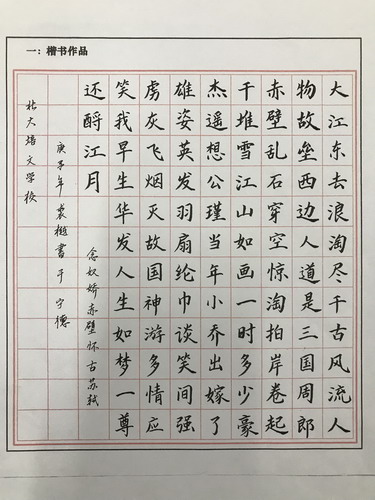 一：楷书作品
大江东去浪淘尽千古风流人
物故垒西边人道是三国周郎
赤壁乱石穿空惊淘拍岸卷起
千堆雪江山如画一时多少豪
杰遥想公瑾当年小乔出嫁了
雄姿英发羽扇纶巾谈笑间强
虏灰飞烟灭故国神游多情应
笑我早生华发人生如梦一尊
还酹江月
念奴娇赤壁怀古苏轼
庚子年裘書于宁德
北大培文学校